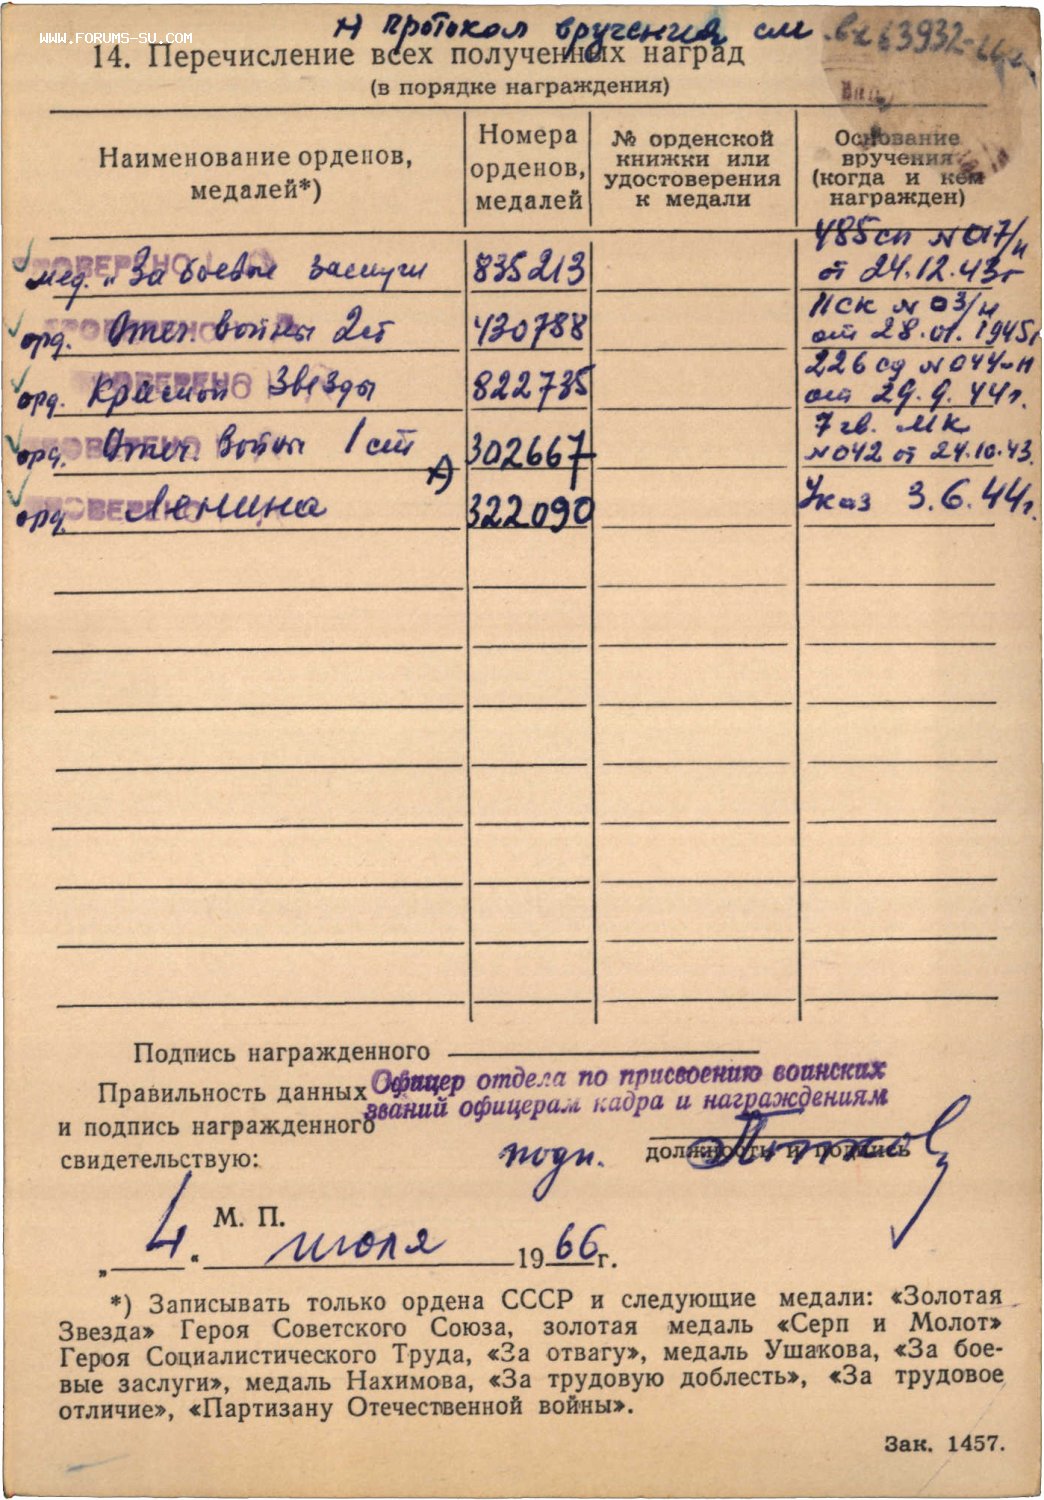 WWW.FORUMS-SU.COM
Протокол вручения см вх 63932-66г
14. Перечисление всех полученных наград
(в порядке награждения)
Наименование орденов, медалей*)
Номера орденов, медалей
№ орденской книжки или удостоверения к медали
Основание вручения (когда и кем награжден)
мед. „За боевые заслуги 835213 485 сп №017/н от 24.12.43г
орд. Отеч. Войны 2ст 430788 ПСК №03/н от 28.01.1945г
орд. Красной Звезды 822735 226 сд №044-н от 29.9.44г.
орд. Отеч. Войны 1 ст 302667 7 гв. МК №042 от 24.10.43.
орд. Ленина 322090 Указ 3.6.44г.
ПРОВЕРЕНО
ПРОВЕРЕНО
ПРОВЕРЕНО
ПРОВЕРЕНО
ПРОВЕРЕНО
Подпись награжденного
Правильность данных
и подпись награжденного
свидетельствую:
Офицер отдела по присвоению воинских
званий офицерам кадра и награждениям
подп.
должность и подпись
М. П.
„4“ июля 1966г.
*) Записывать только ордена СССР и следующие медали: «Золотая
Звезда» Героя Советского Союза, золотая медаль «Серп и Молот»
Героя Социалистического Труда, «За отвагу», медаль Ушакова, «За бое-
вые заслуги», медаль Нахимова, «За трудовую доблесть», «За трудовое
отличие», «Партизану Отечественной войны».
Зак. 1457.